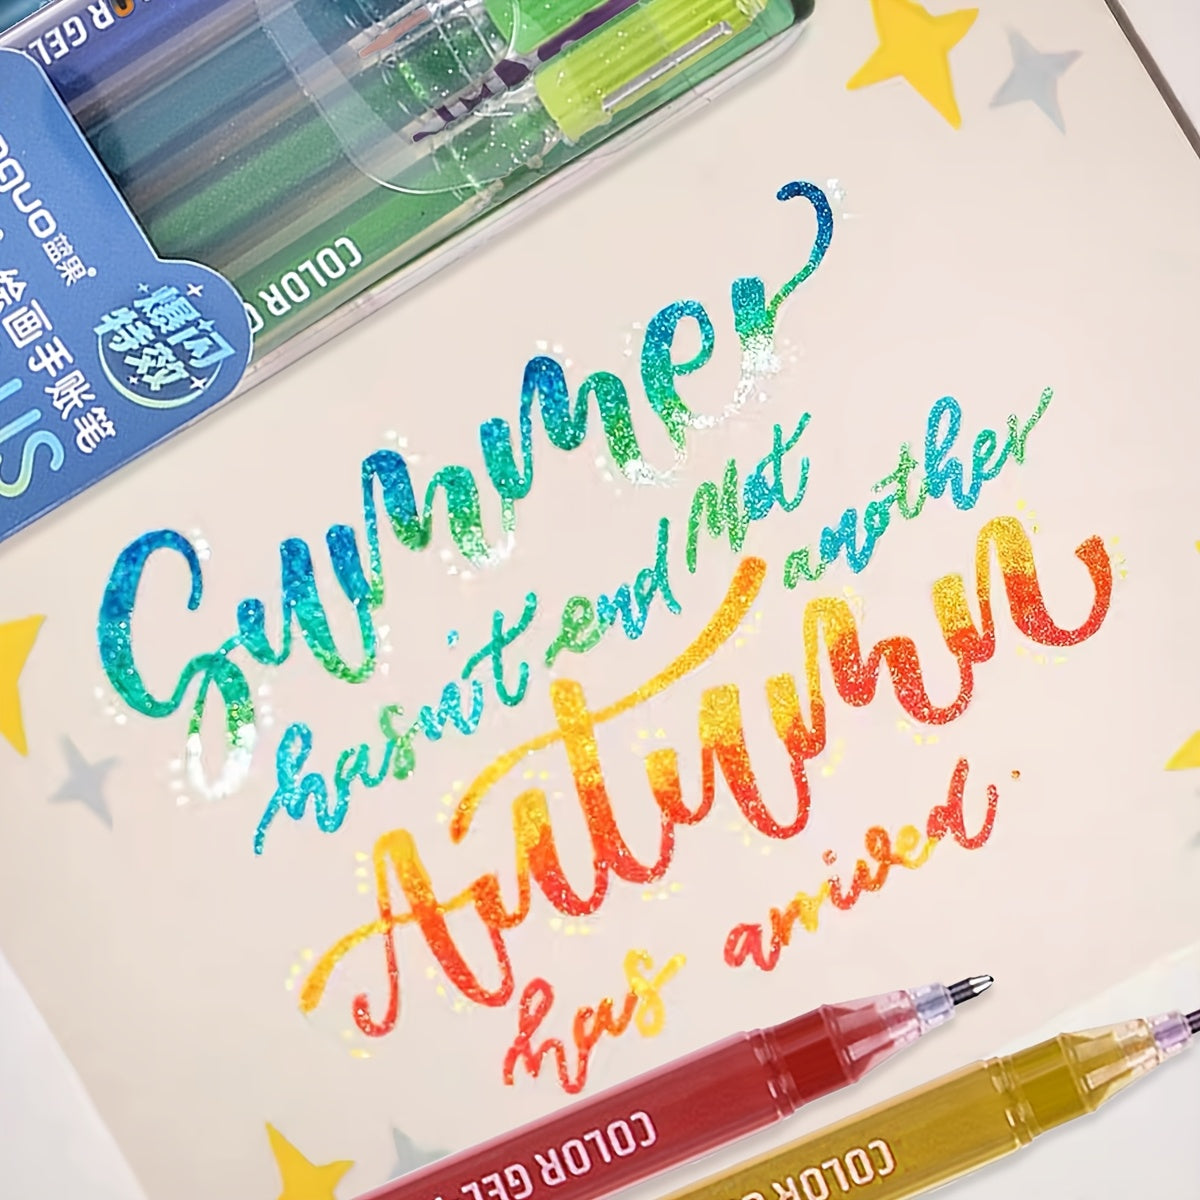 COLOR GEL
COLOR G
蓝果®
绘画手账笔
爆闪
特效
Summer
hasn't end Not
another
Autumn
has arrived.
COLOR GEL
COLOR G